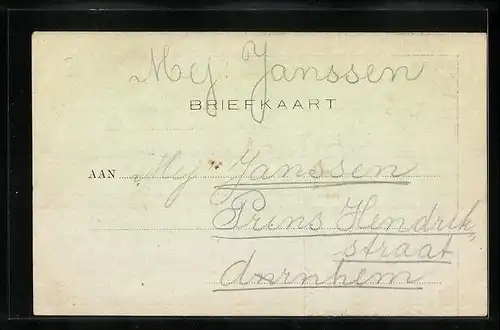 Mej: Janssen
BRIEFKAART
AAN Mej Janssen
Prins Hendrik
straat
Arnhem